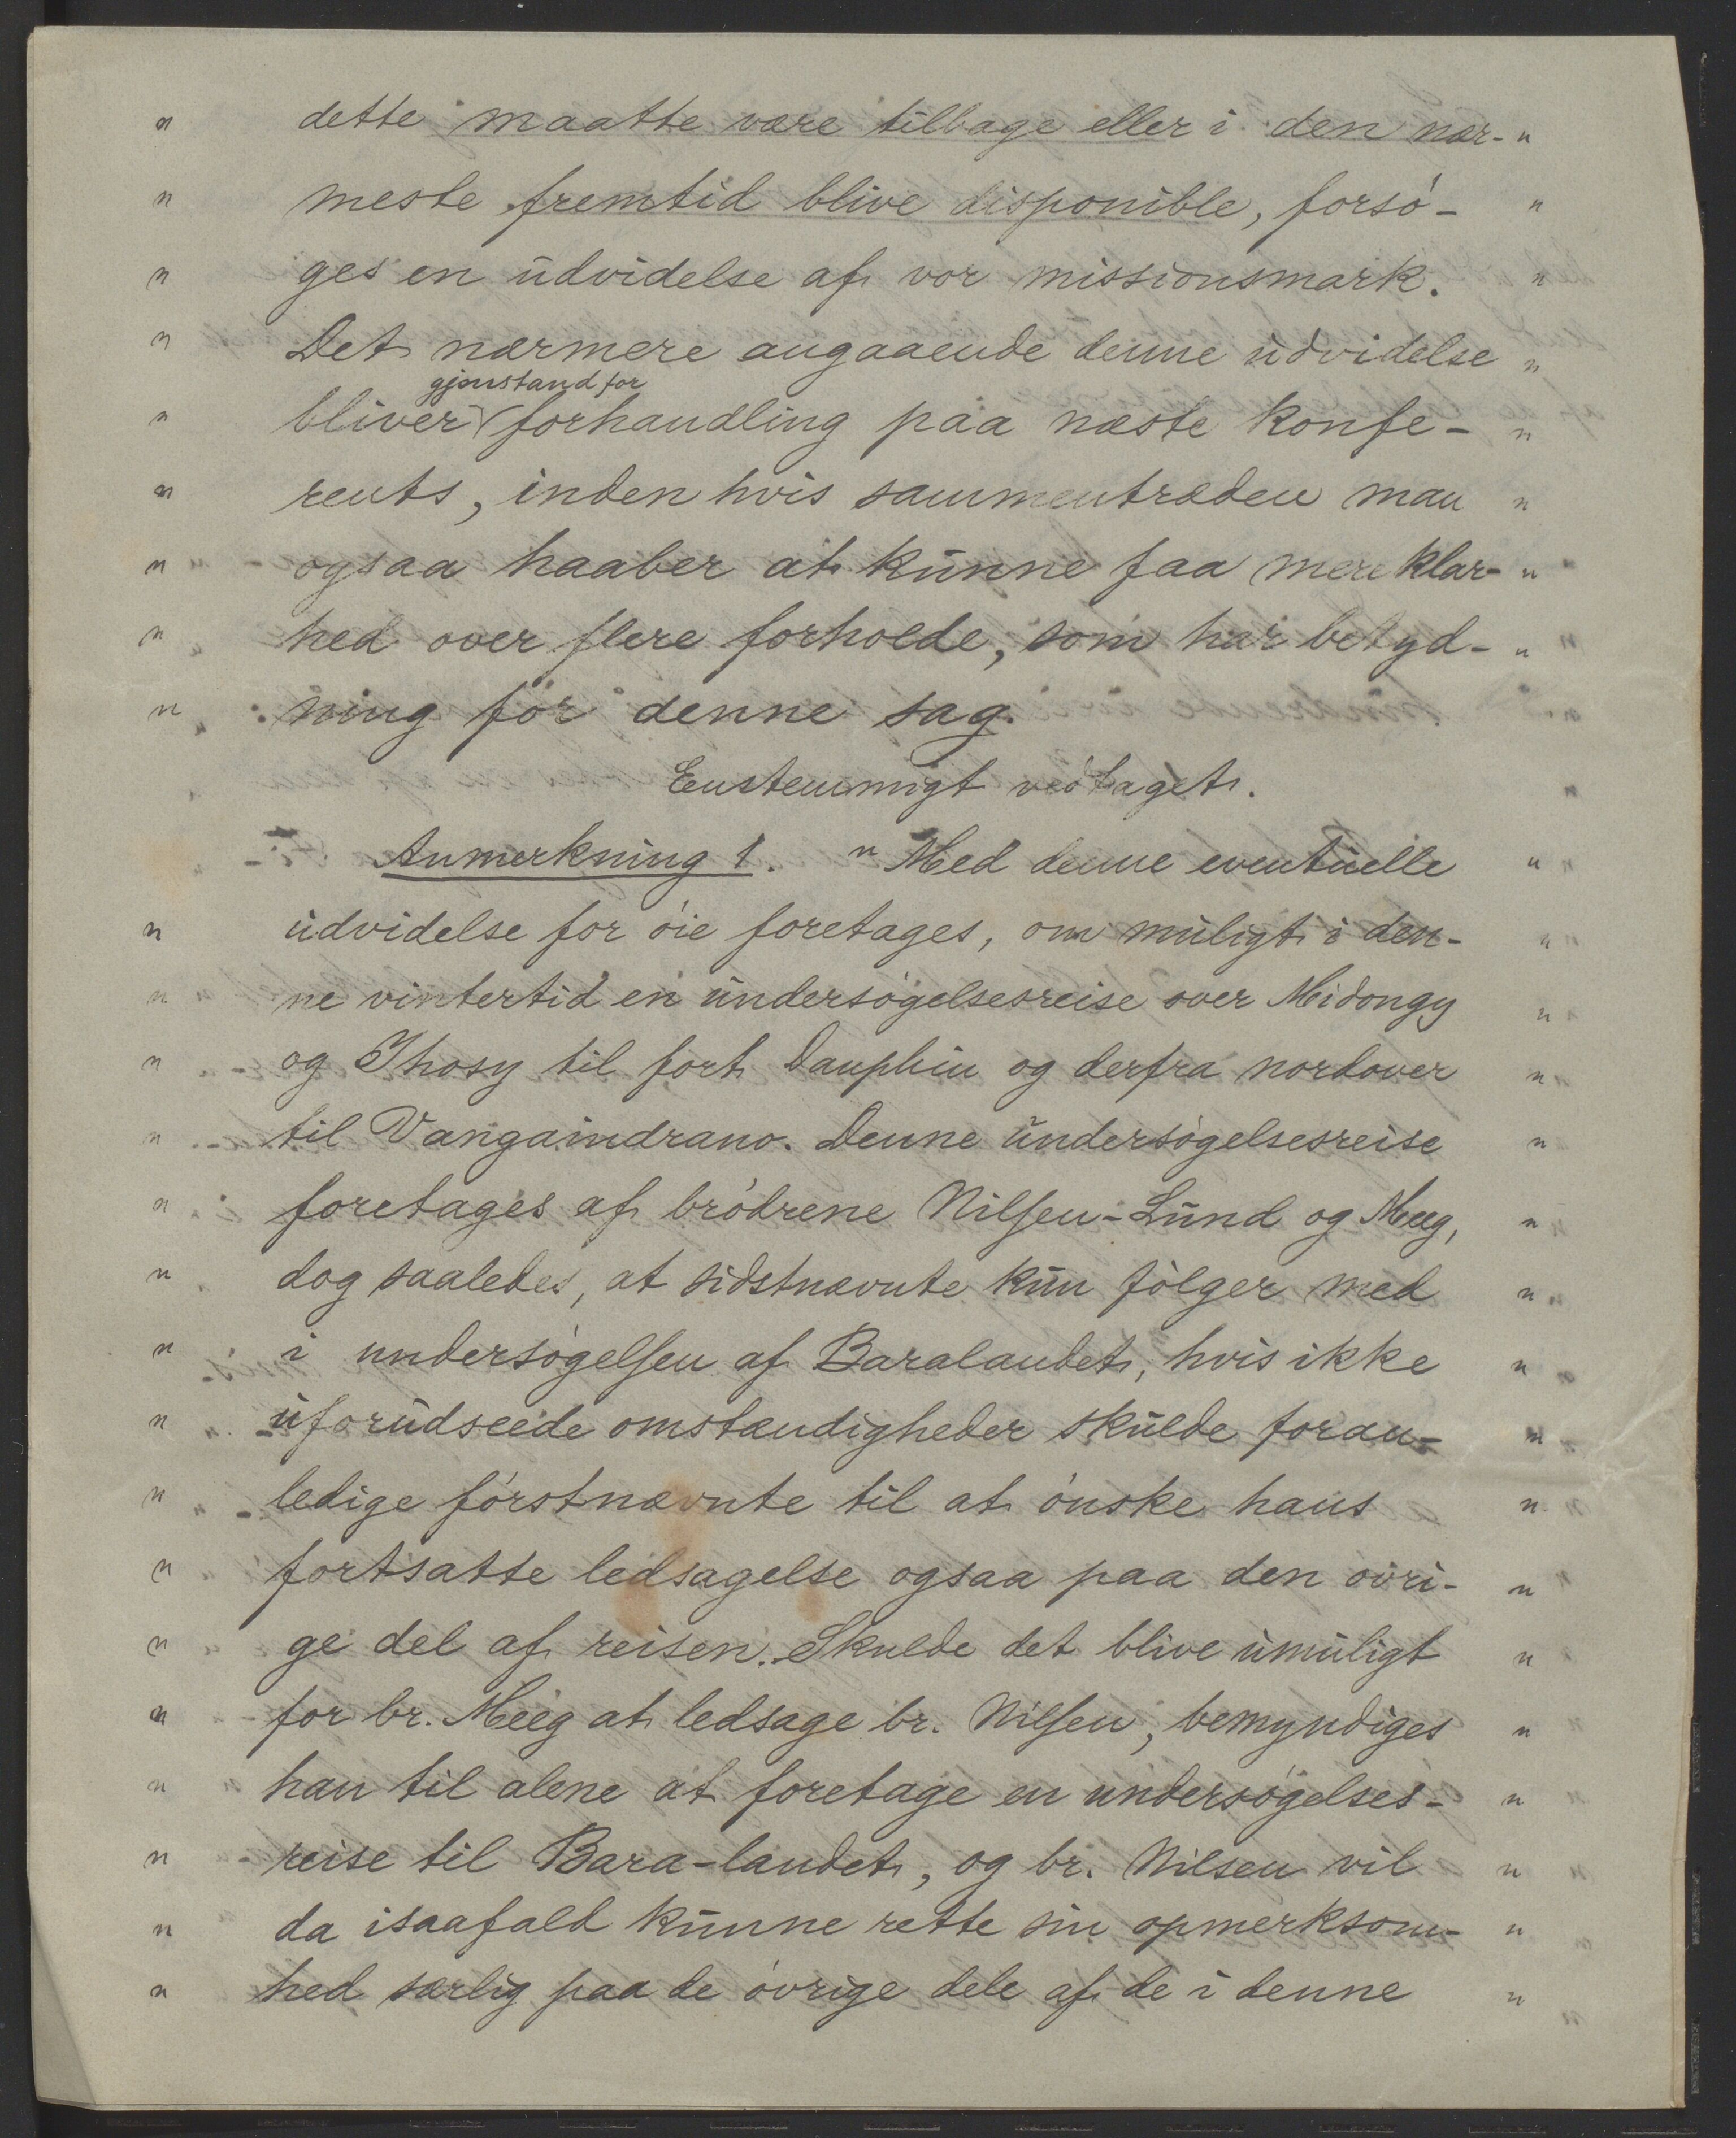 " dette maatte være tilbage eller i den nær- "
" meste fremtid blive disponible, forsø- "
" ges en udvidelse af vor missionsmark. "
" Det nærmere angaaende denne udvidelse "
gjenstand for
" bliver forhandling paa næste konfe- "
" rents, inden hvis sammentræden man "
" ogsaa haaber at kunne faa mere klar- "
" hed over flere forholde, som har betyd- "
" ning for denne sag.
Enstemmigt vedtaget.
Anmerkning 1. " Med denne eventuelle "
" udvidelse for øie foretages, om muligt i den- "
" ne vintertid en undersøgelsesreise over Midongy "
" og Ihosy til fort Dauphin og derfra nordover "
" til Vangaindrano. Denne undersøgelsesreise "
" foretages af brødrene Nilsen-Lund og Meeg, "
" dog saaledes, at sidstnævnte kun følger med "
" i undersøgelsen af Baralandet, hvis ikke "
" uforudseede omstændigheder skulde foran- "
" ledige førstnævnte til at ønske hans "
" fortsatte ledsagelse ogsaa paa den øvri- "
" ge del af reisen. Skulde det blive umuligt "
" for br. Meeg at ledsage br. Nilsen, bemyndiges "
" han til alene at foretage en undersøgelses- "
" reise til Bara-landet, og br. Nilsen vil "
" da isaafald kunne rette sin opmerksom- "
" hed særlig paa de øvrige dele af de i denne "